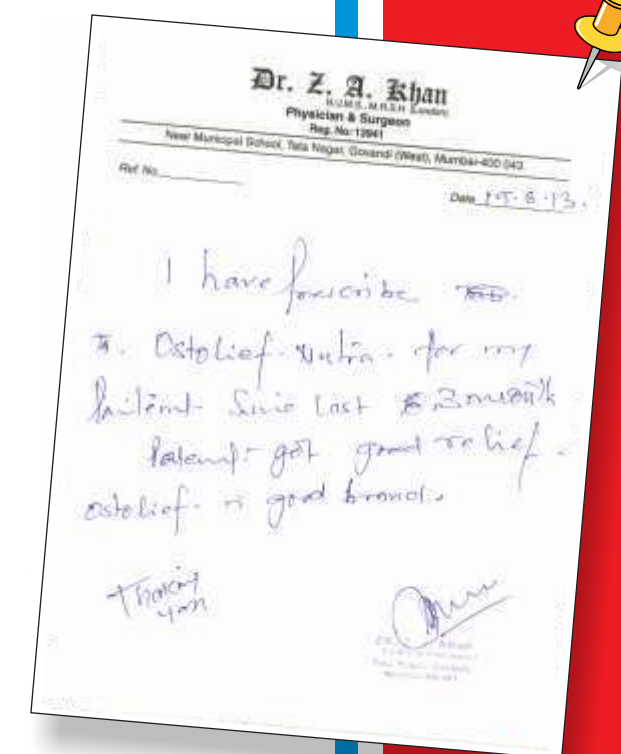 Dr. Z. A. Khan
B.U.M.S., M.R.S.H. (London)
Physician & Surgeon
Reg. No: 13941
Near Municipal School, Tata Nagar, Govandi (West), Mumbai-400 043.
Ref No.
Date 15.8.13.
I have prescribe
T. Ostolief Nutra. for my
Since last 3 month
got good relief.
Ostolief is good brand.
Thanking
you
Khan